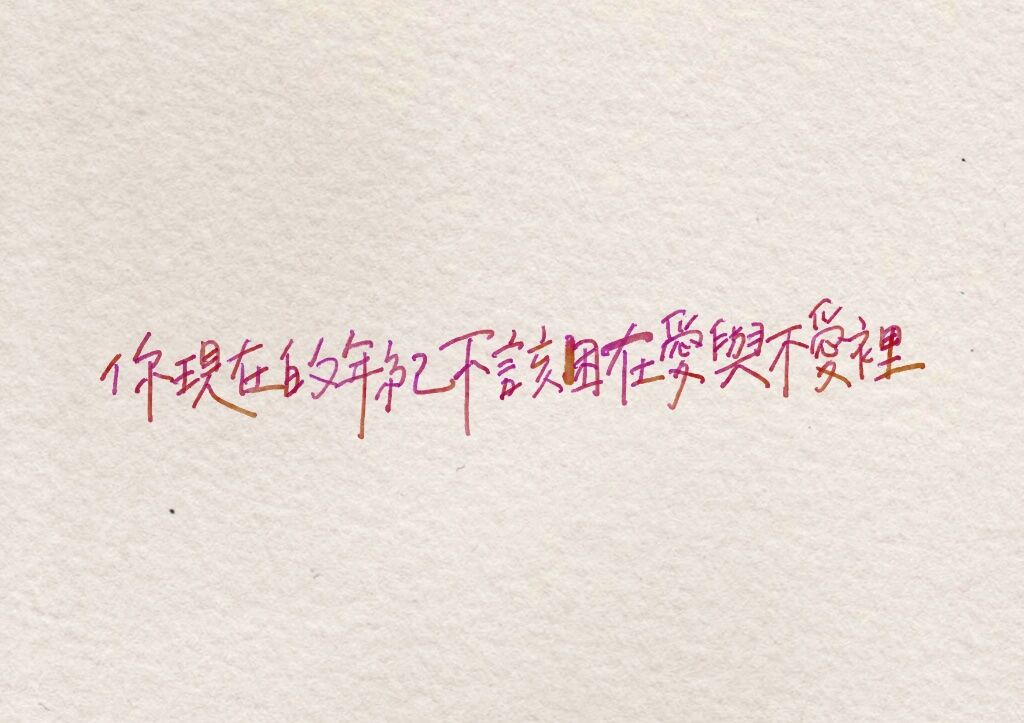 你現在的年紀不該困在愛與不愛裡